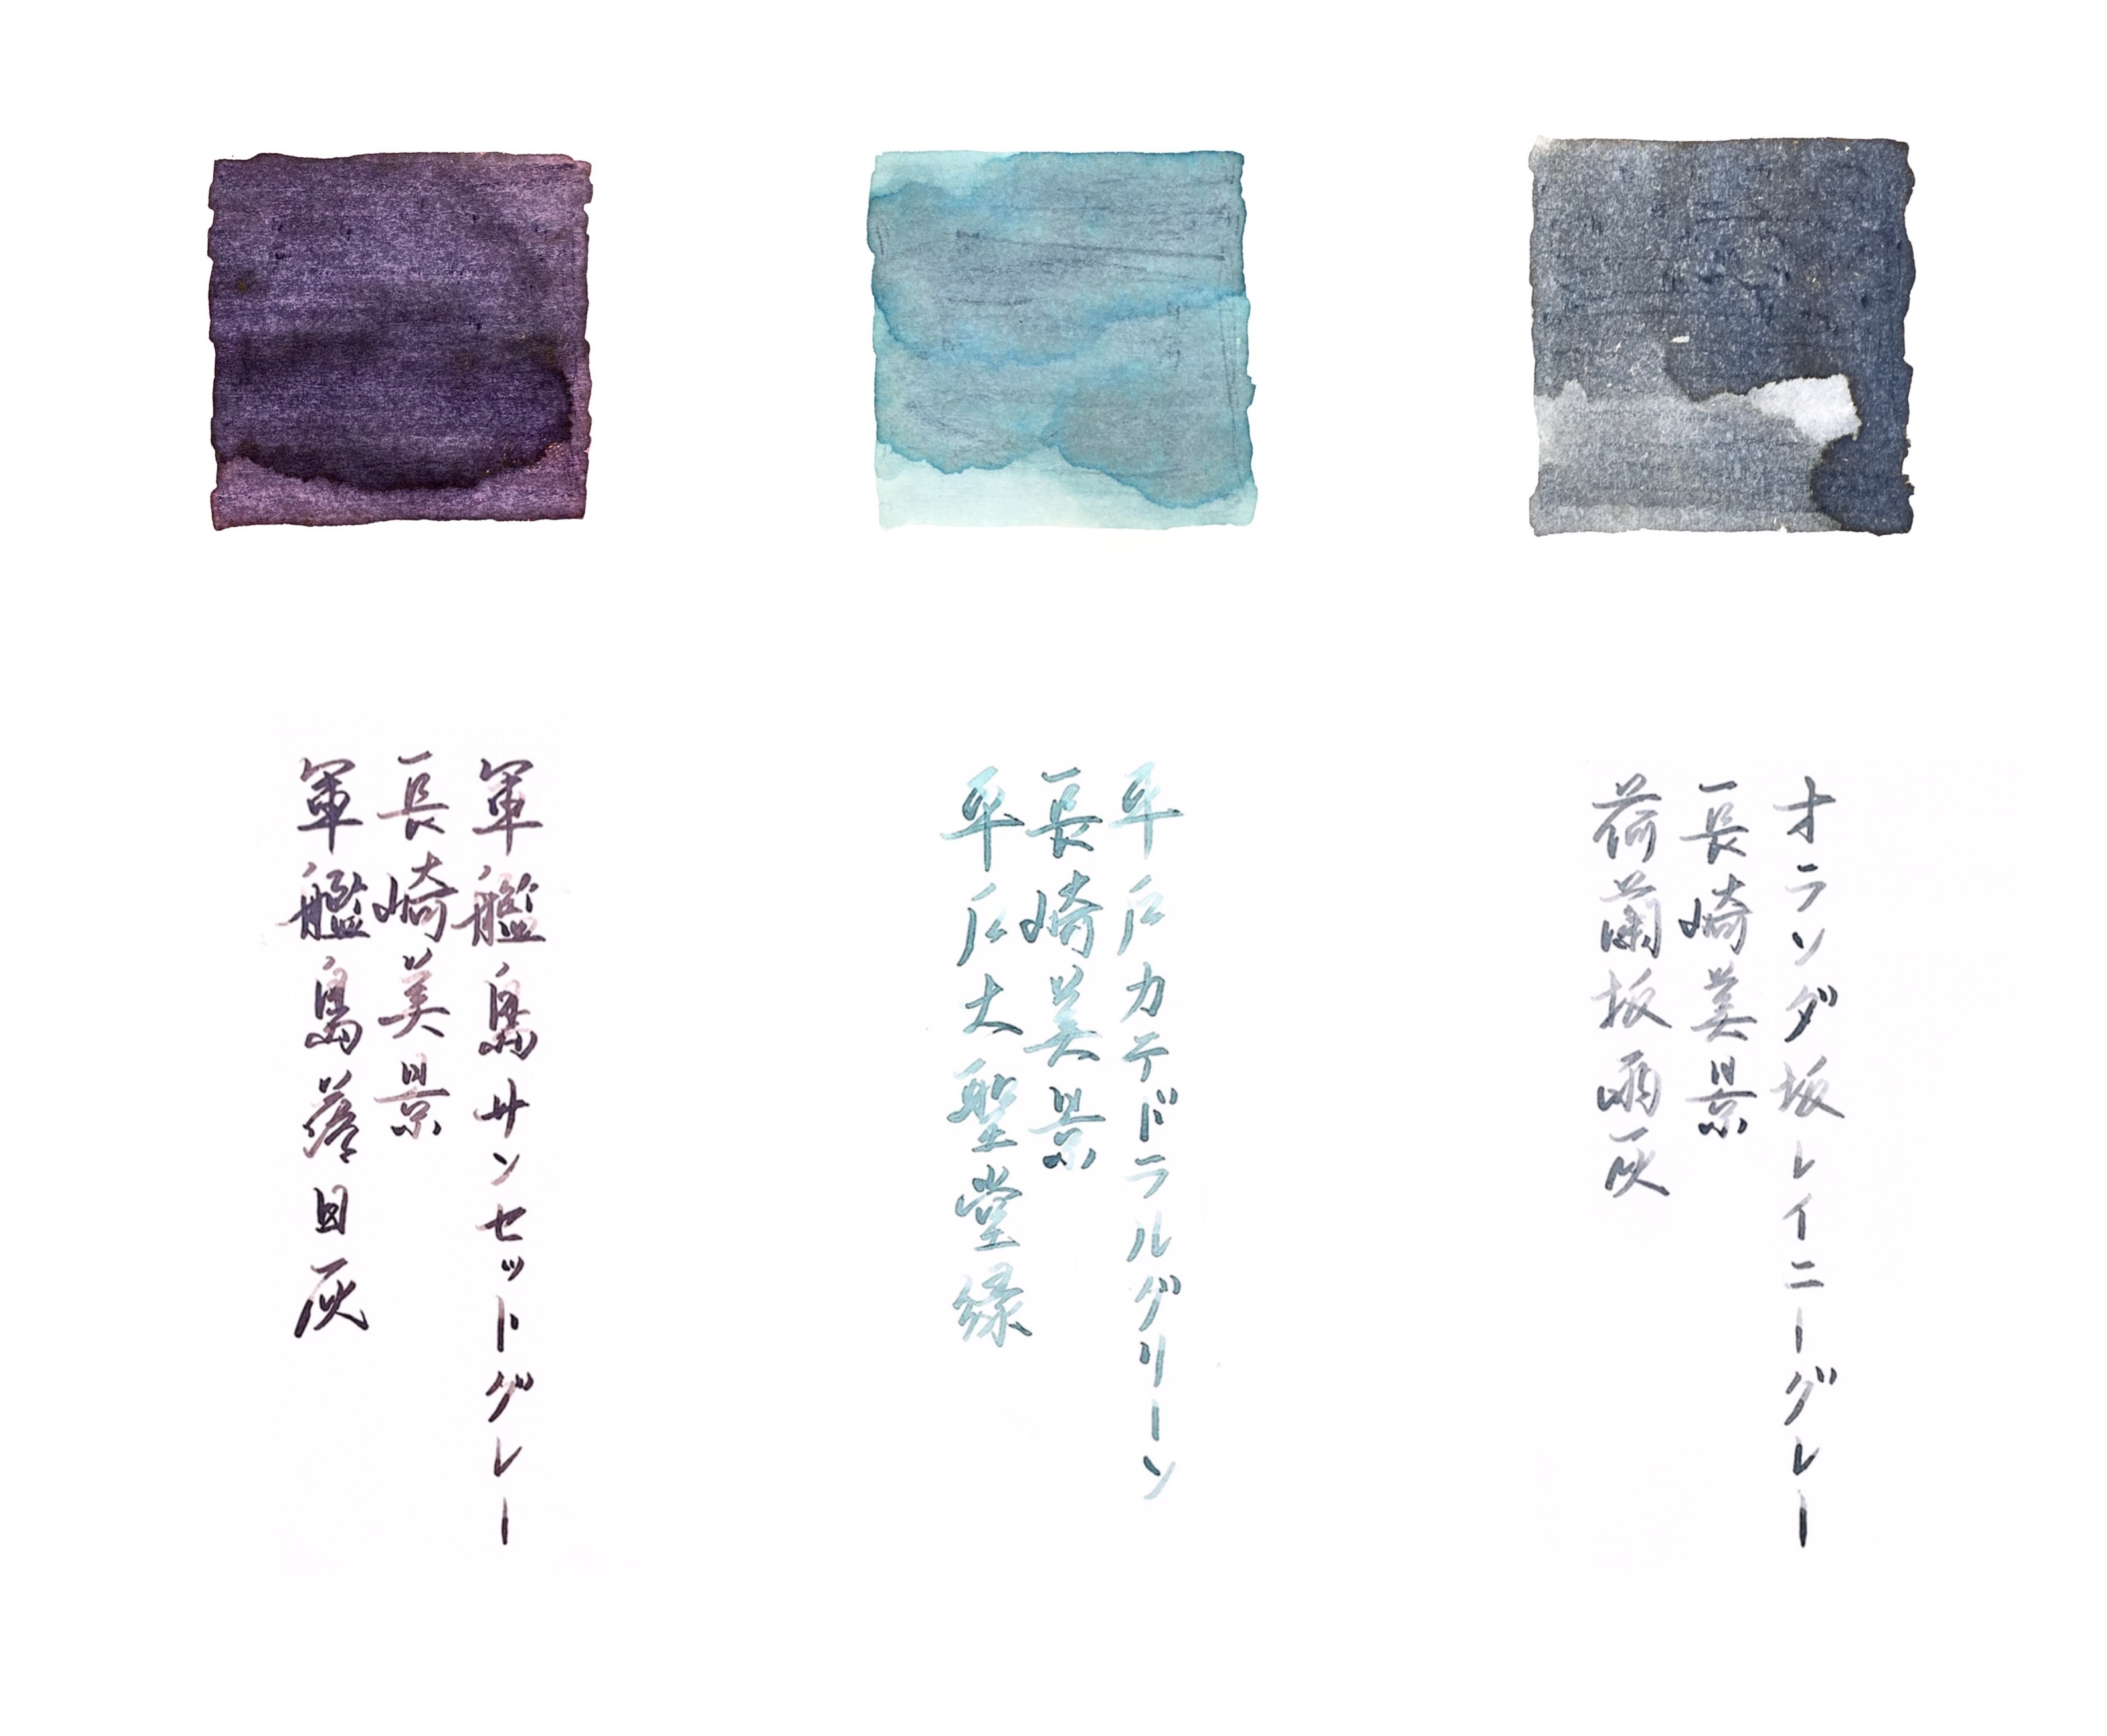 軍艦島サンセットグレー
長崎美景
軍艦島落日灰
平戸カテドラルグリーン
長崎美景
平戸大聖堂緑
オランダ坂レイニーグレー
長崎美景
荷蘭坂雨灰